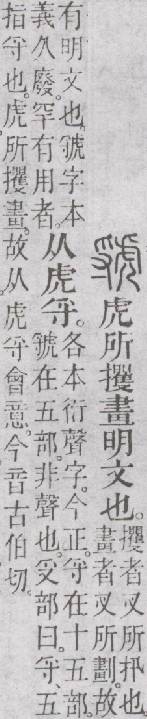 虢虎所攫畫明文也。
攫者叉所扟也
畫者叉所劃。故
有明文也。虢字本
義久廢。罕有用者。
从虎寽。
各本衍聲字。今正。寽在十五部。
虢在五部。非聲也。𠬪部曰。寽、五
指寽也。虎所攫畫。故从虎寽會意。今音古伯切